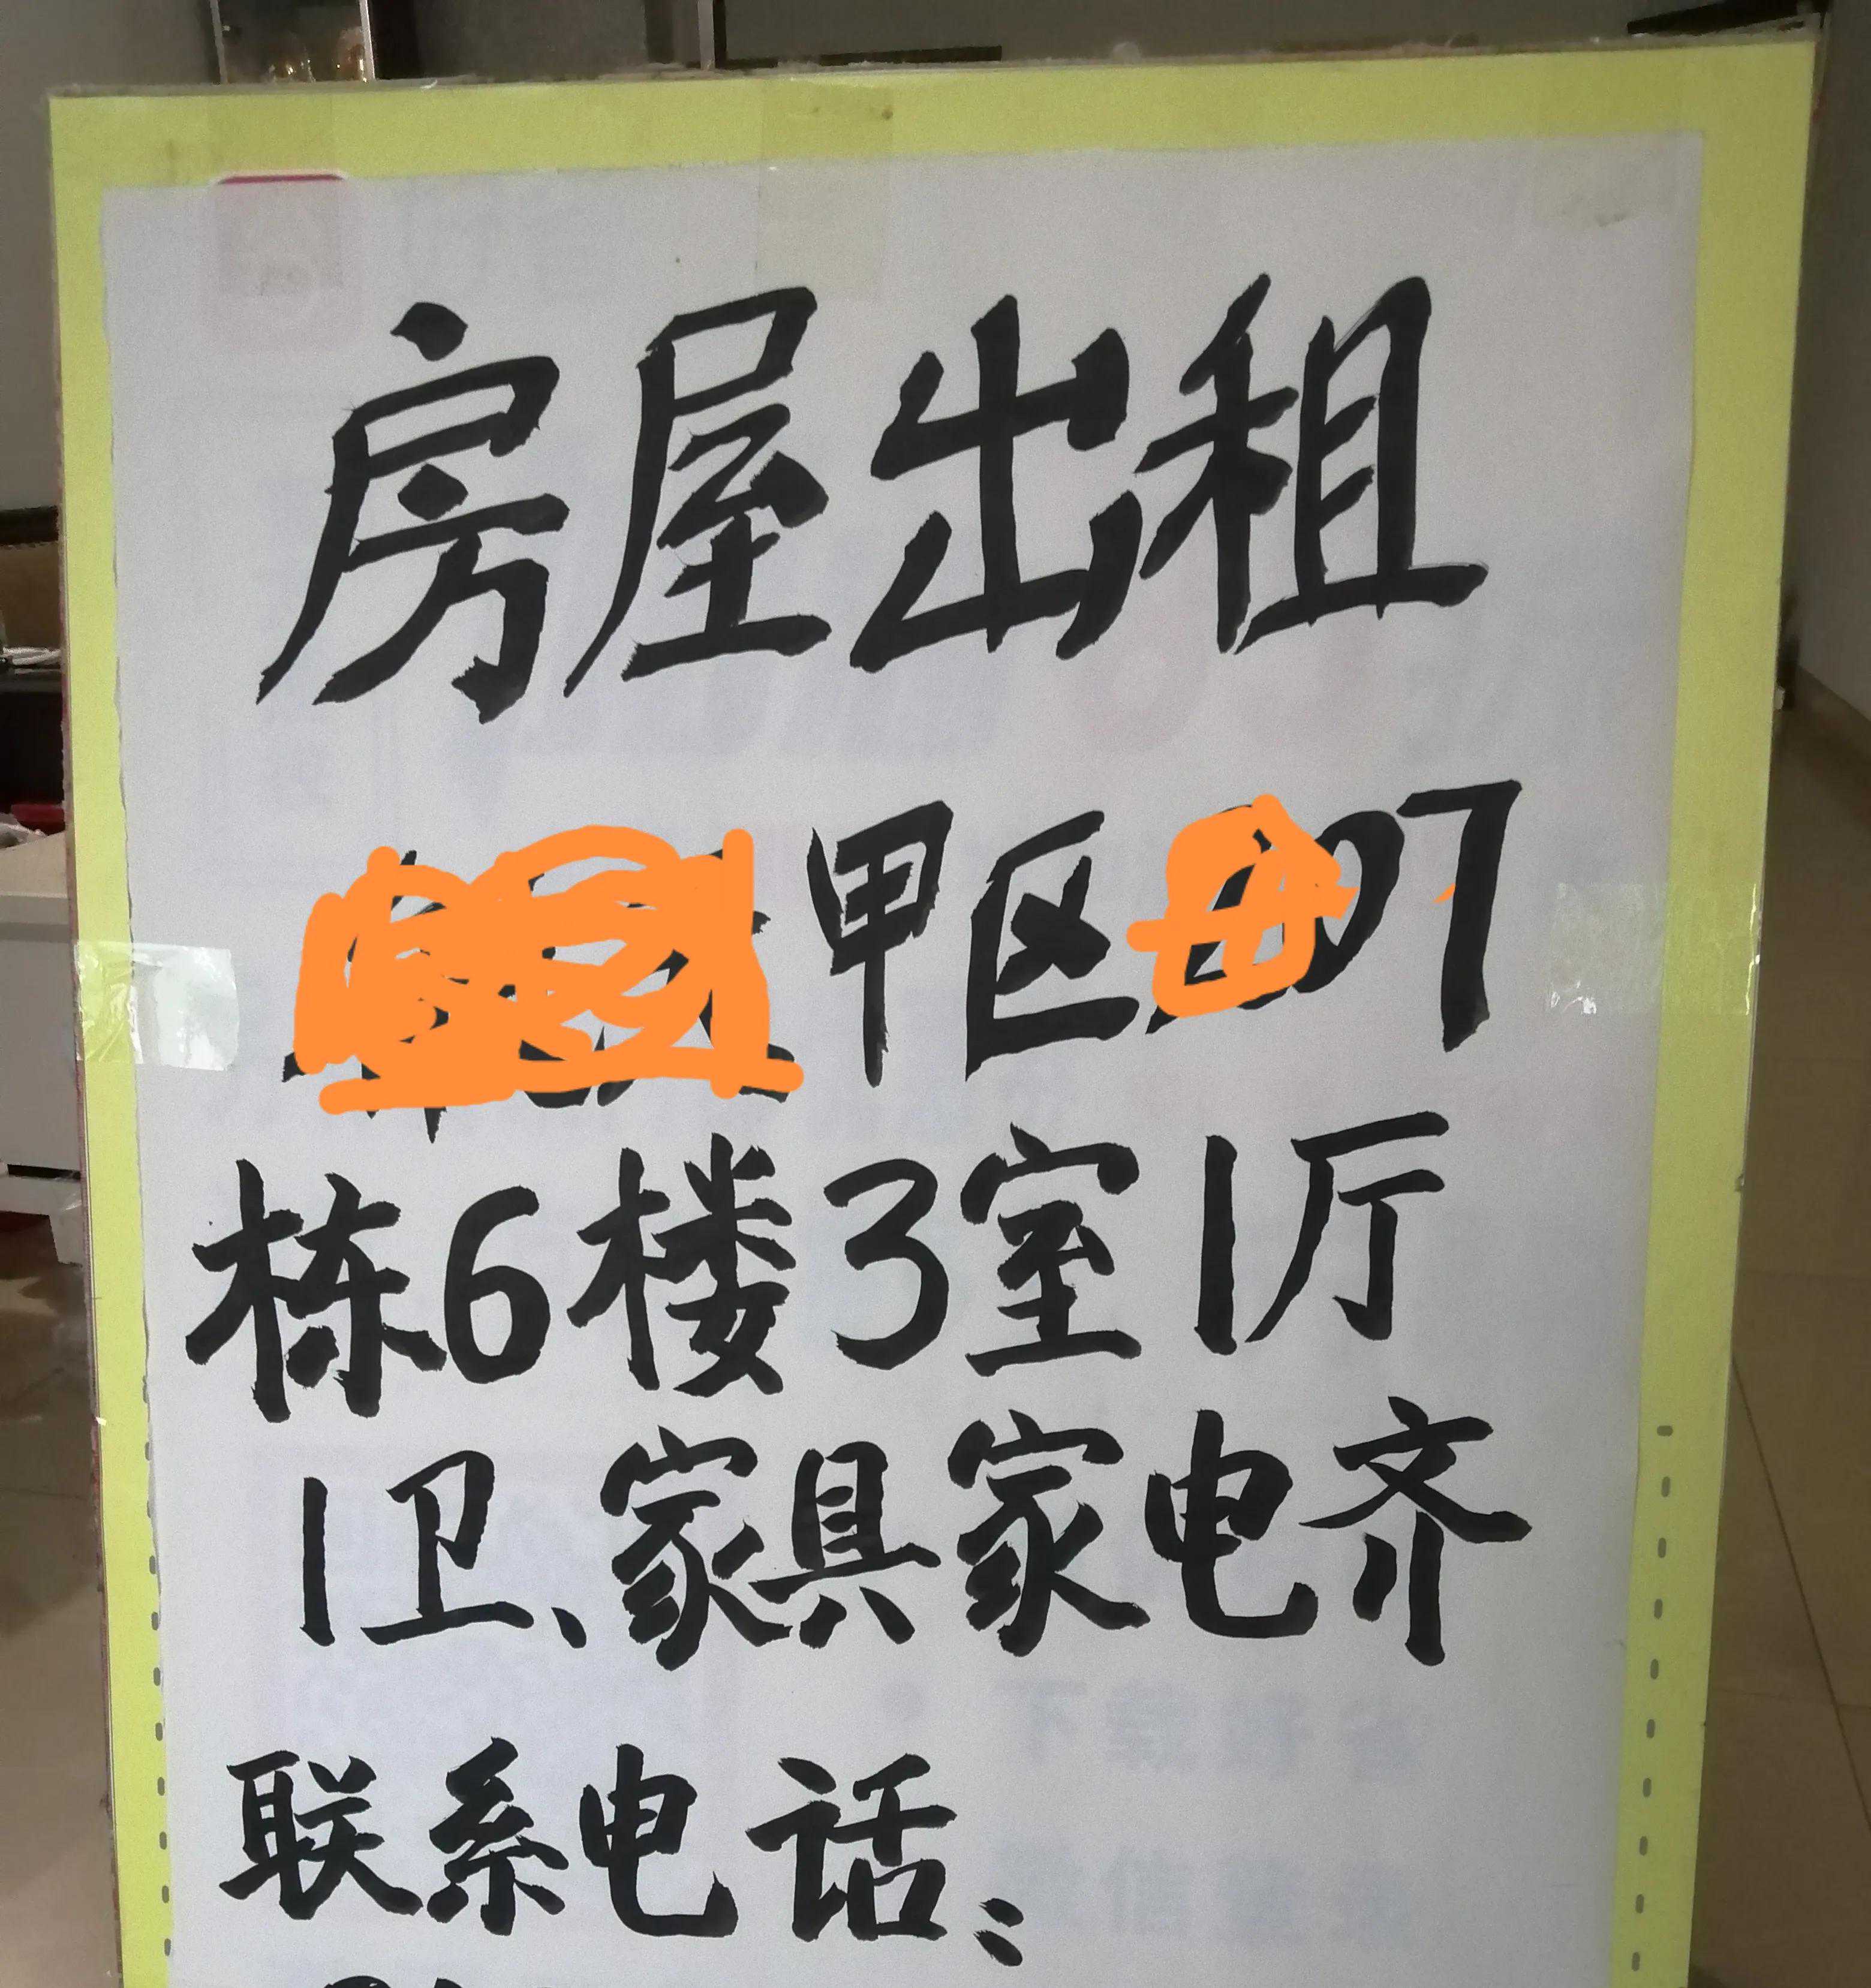 房屋出租
甲区07
栋6楼3室1厅
1卫、家具家电齐
联系电话: